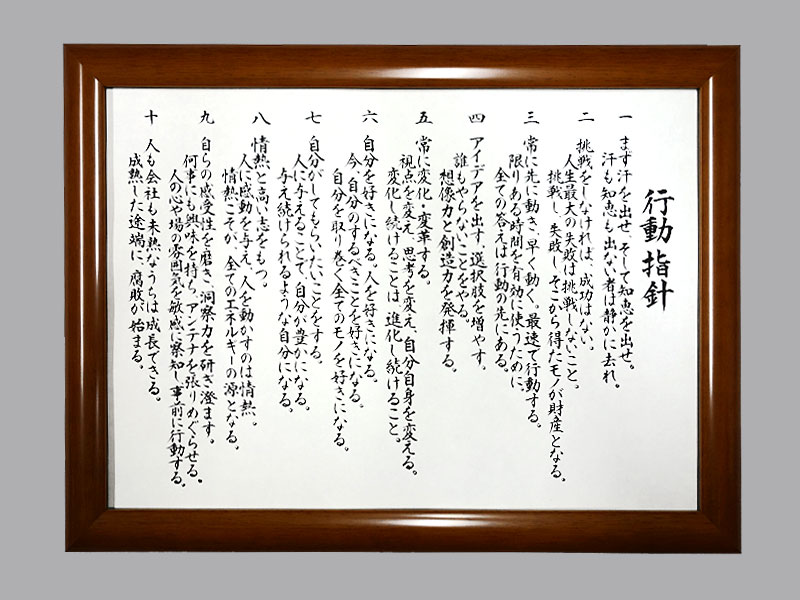 行動指針
一 まず汗を出せ、そして知恵を出せ。
汗も知恵も出ない者は静かに去れ。
二 挑戦をしなければ、成功はない。
人生最大の失敗は挑戦しないこと。
挑戦し、失敗し、そこから得たモノが財産となる。
三 常に先に動き、早く動く。最速で行動する。
限りある時間を有効に使うために
全ての答えは行動の先にある。
四 アイデアを出す、選択肢を増やす、
誰もやらないことをやる。
想像力と創造力を発揮する。
五 常に変化・変革する。
視点を変え、思考を変え、自分自身を変える。
変化し続けることは、進化し続けること。
六 自分を好きになる。人を好きになる。
今、自分のするべきことを好きになる。
自分を取り巻く全てのモノを好きになる。
七 自分がしてもらいたいことをする。
人に与えることで、自分が豊かになる。
与え続けられるような自分になる。
八 情熱と高い志をもつ。
人に感動を与え、人を動かすのは情熱。
情熱こそが、全てのエネルギーの源となる。
九 自らの感受性を磨き、洞察力を研ぎ澄ます。
何事にも興味を持ち、アンテナを張りめぐらせる。
人の心や場の雰囲気を敏感に察知し、事前に行動する。
十 人も会社も未熟なうちは成長できる。
成熟した途端に、腐敗が始まる。